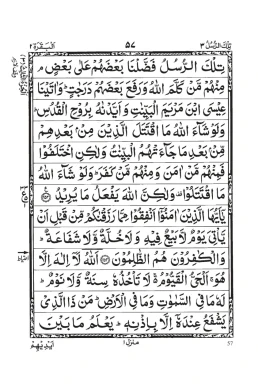 تِلْكَ الرُّسُلُ ٣ ٥٧ الْبَقَرَة ٢
تِلْكَ الرُّسُلُ فَضَّلْنَا بَعْضَهُمْ عَلٰی بَعْضٍ ۘ
مِنْهُمْ مَّنْ كَلَّمَ اللّٰهُ وَرَفَعَ بَعْضَهُمْ دَرَجٰتٍ ؕ وَاٰتَيْنَا
عِيْسَی ابْنَ مَرْيَمَ الْبَيِّنٰتِ وَاَيَّدْنٰهُ بِرُوْحِ الْقُدُسِ ؕ
وَلَوْ شَآءَ اللّٰهُ مَا اقْتَتَلَ الَّذِيْنَ مِنْۢ بَعْدِهِمْ
مِّنْۢ بَعْدِ مَا جَآءَتْهُمُ الْبَيِّنٰتُ وَلٰكِنِ اخْتَلَفُوْا
فَمِنْهُمْ مَّنْ اٰمَنَ وَمِنْهُمْ مَّنْ كَفَرَ ؕ وَلَوْ شَآءَ اللّٰهُ
مَا اقْتَتَلُوْا ۟ وَلٰكِنَّ اللّٰهَ يَفْعَلُ مَا يُرِيْدُ
يٰۤاَيُّهَا الَّذِيْنَ اٰمَنُوْۤا اَنْفِقُوْا مِمَّا رَزَقْنٰكُمْ مِّنْ قَبْلِ اَنْ
يَّاْتِیَ يَوْمٌ لَّا بَيْعٌ فِيْهِ وَلَا خُلَّةٌ وَّلَا شَفَاعَةٌ ؕ
وَالْكٰفِرُوْنَ هُمُ الظّٰلِمُوْنَ اَللّٰهُ لَاۤ اِلٰهَ اِلَّا
هُوَ ۚ اَلْحَیُّ الْقَيُّوْمُ ۚ لَا تَاْخُذُهٗ سِنَةٌ وَّلَا نَوْمٌ ؕ
لَهٗ مَا فِی السَّمٰوٰتِ وَمَا فِی الْاَرْضِ ؕ مَنْ ذَا الَّذِیْ
يَشْفَعُ عِنْدَهٗۤ اِلَّا بِاِذْنِهٖ ؕ يَعْلَمُ مَا بَيْنَ
منزل ١ اَيْدِيْهِمْ
57